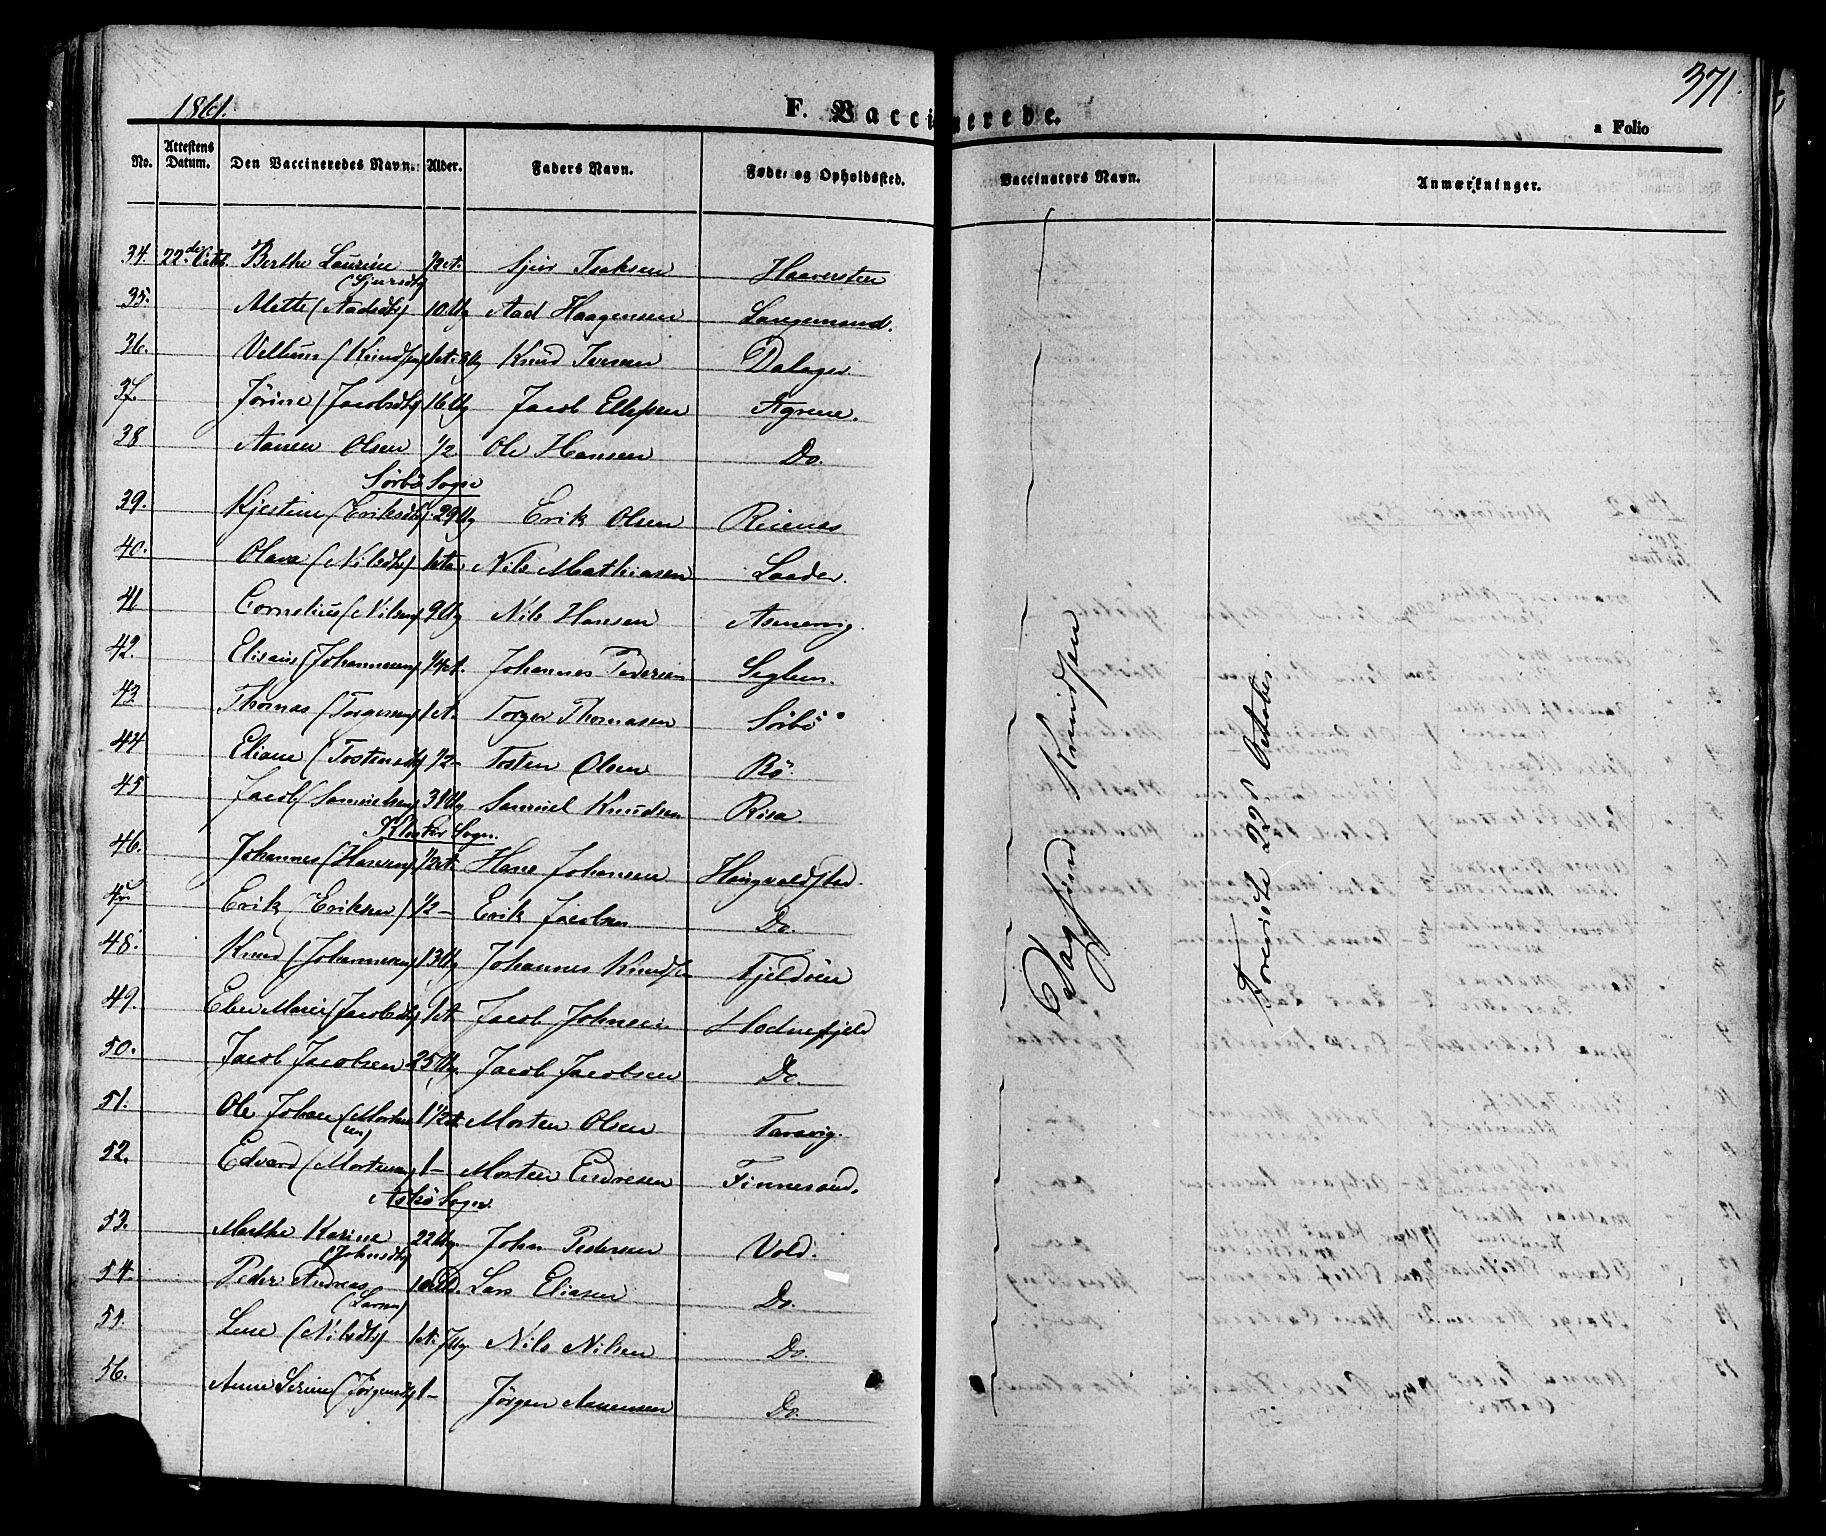 1861.
F. Vaccinerede.
371.
a Folio
No. Attestens Datum. Den Vaccineredes Navn. Alder. Faders Navn. Føde- og Opholdssted. Vaccinators Navn. Anmærkninger.
34. 22de Berthe Laurine (Sjursdtr) 1/2 et. Sjur Isaksen Haaversten
35. Alette (Aadsdtr) 10 Ug Aad Haagensen Langemund.
36. Villum (Knudsen) 1 et. Ug Knud Iversen Dalager
37. Jørine (Jacobsdtr) 16 Ug Jacob Ellefsen
38 Aanen Olsen 1/2 Ole Hansen Do.
Sørbø Sogn
39. Kjestine (Eriksdtr) 29 Ug Erik Olsen Reienes
40. Olava (Nilsdtr) Nils Mathiasen Laader.
41 Cornelius (Nilsen) 9 Ug Nils Hansen Asmervig.
42. Elisæus (Johannesen) 1/4 et. Johannes Pedersen Seglem.
43. Thomas (Torgersen) 1 et. Torger Thomasen Sørbø
44 Eliane (Tostensdtr) 1/2 – Tosten Olsen Bø.
45 Jacob (Samuelsen) 31 Ug Samuel Knudsen Risa.
Kloster Sogn.
46. Johannes (Hansen) 1/2 et. Hans Johansen Haugvaldstad.
47 Erik (Eriksen) 1/2 – Erik Jacobsen Do.
48. Knud (Johannesen) 13 Ug Johannes Knuds. Fjeldøen
49. Marie (Jacobsdtr) 1 et. Jacob Johnsen Hodnefjeld
50. Jacob Jacobsen 25 Ug. Jacob Jacobsen Do.
51. Ole Johan (Mortensen) 1 1/2 et. Morten Olsen Taravig.
52. Edvard (Mortensen) 1 – Morten Endresen Finnesand.
Askø Sogn.
53. Marthe Karine (Johnsdtr) 22 Ug. John Pedersen Vold.
54. Peder Andreas (Larsen) Lars Eliasen Do.
55. Lene (Nilsdtr) 1 et. 7 Ug Nils Nilsen Do.
56. Anne Serine (Jørgensdtr) 1 – Jørgen Aanensen Do.
Dagfind Knudsen
Foreviste 22de October.